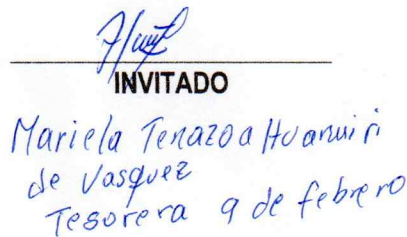 INVITADO
Mariela Tenazoa Huanuiri
de Vasquez
Tesorera 9 de febrero